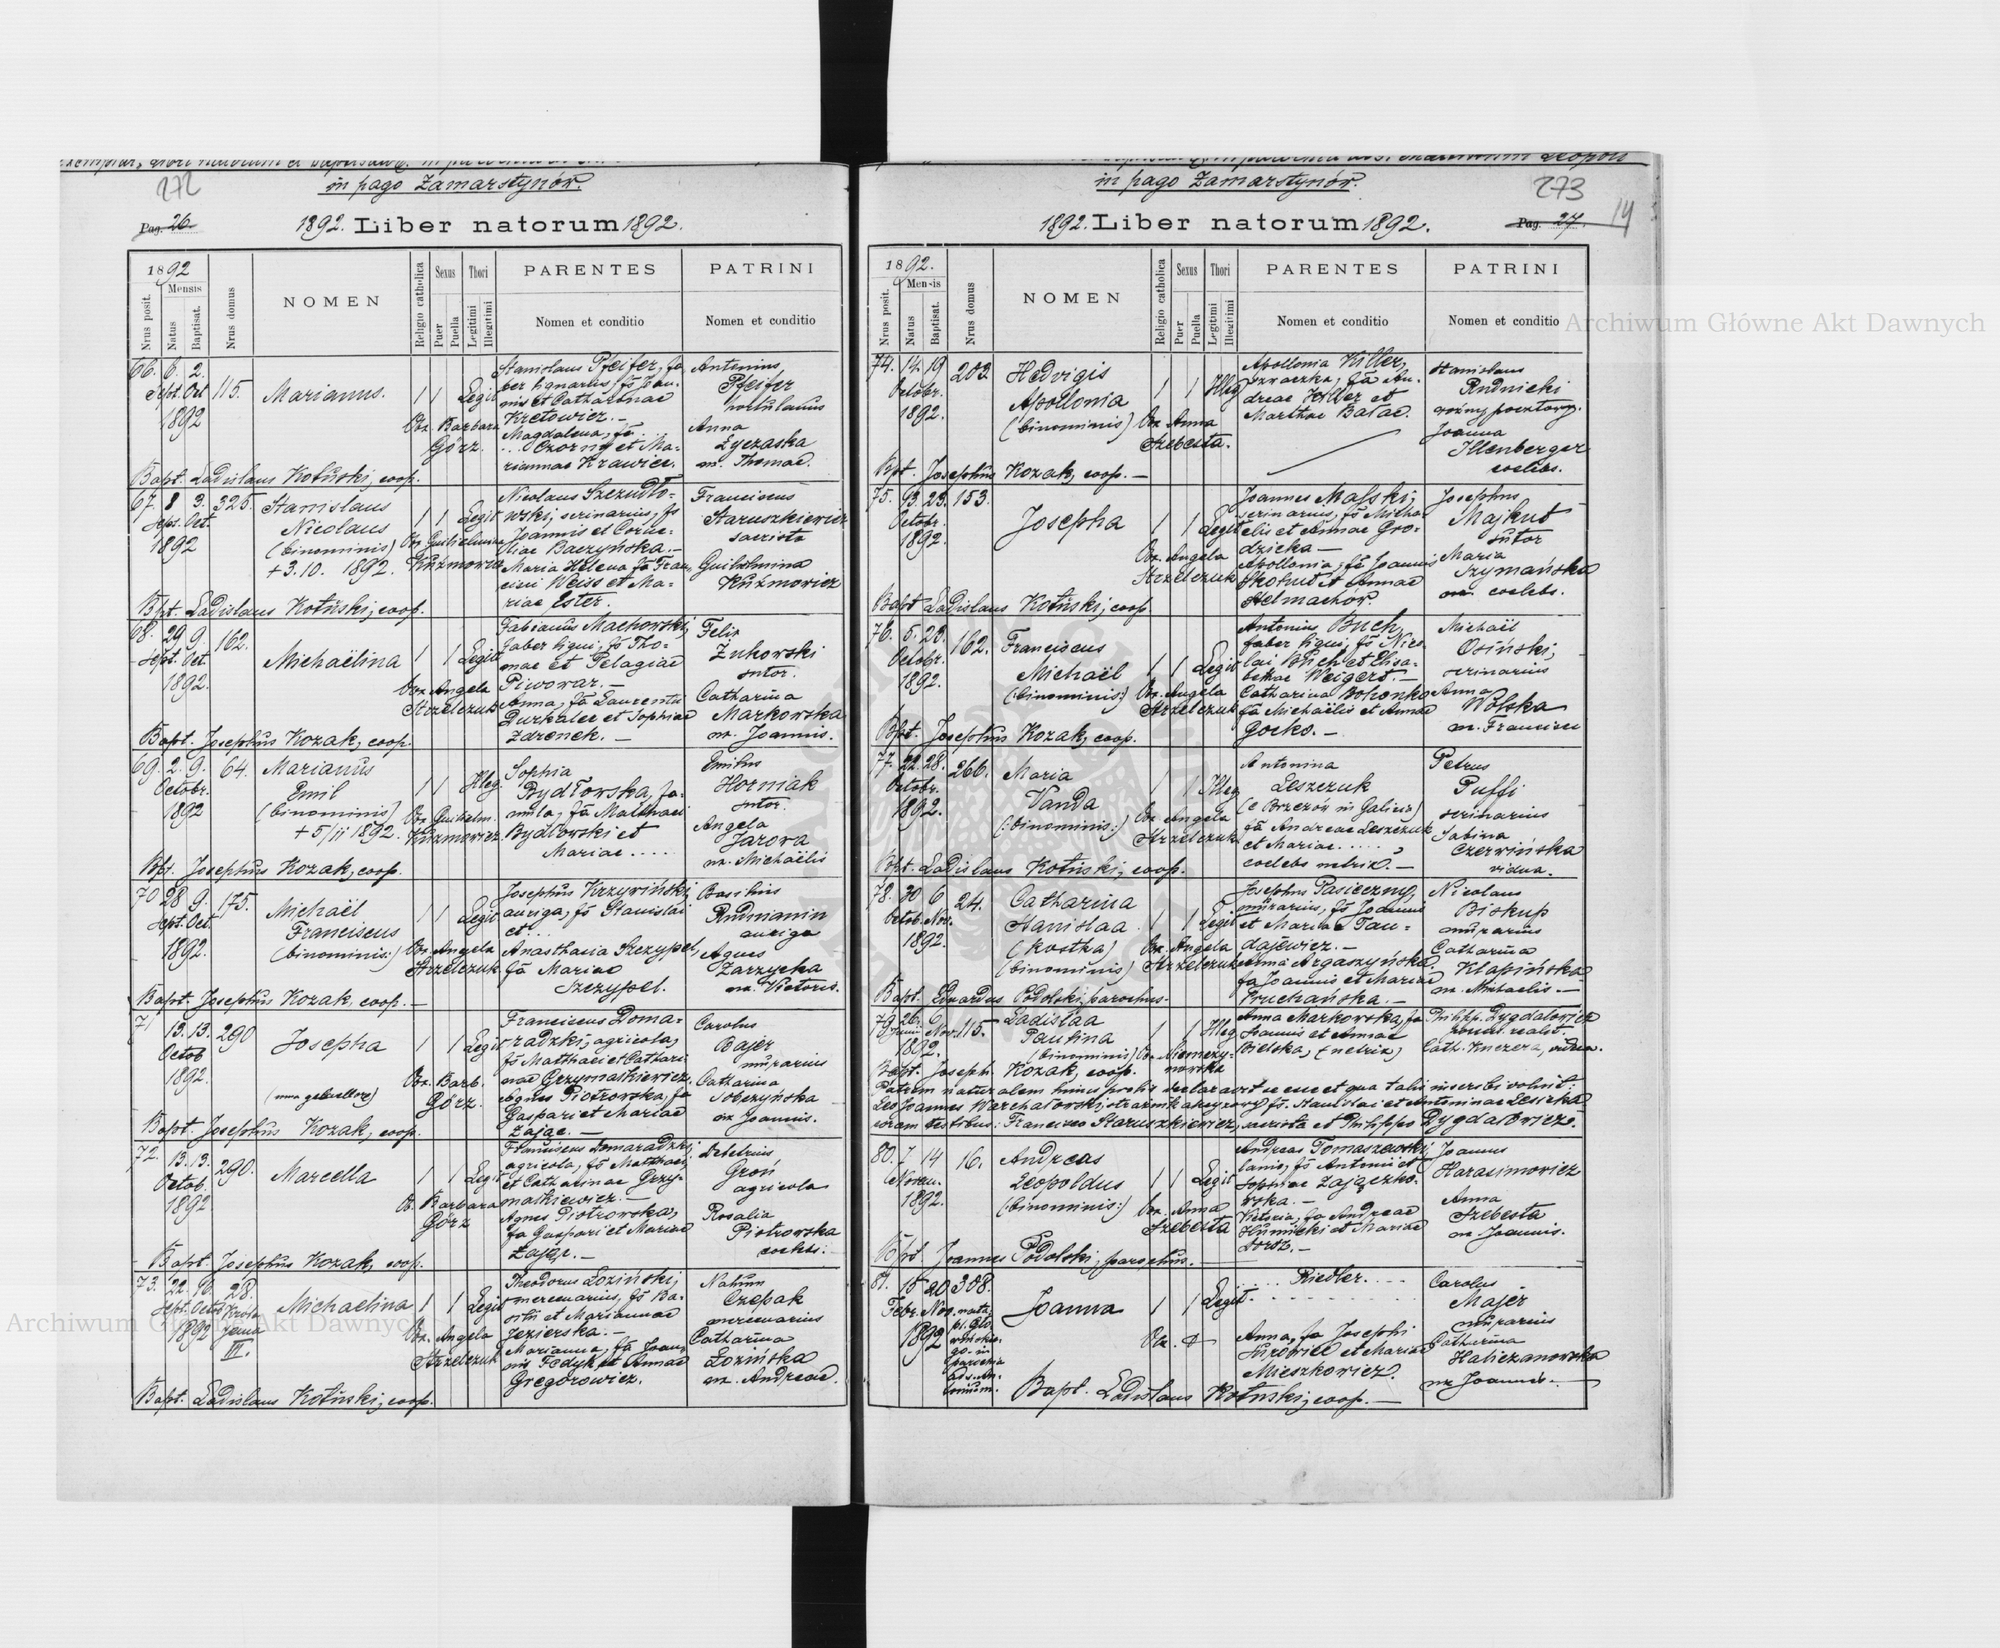 272
in pago Zamarstynów.
Pag. 26
1892. Liber natorum 1892.
1892
Nrus posit.
Mensis
Natus
Baptisat.
Nrus domus
NOMEN
Religio catholica
Sexus
Puer
Puella
Thori
Legitimi
Illegitimi
PARENTES
Nomen et conditio
PATRINI
Nomen et conditio
66. 6. 2. Sept. Oct 1892
115.
Marianus.
1 1 Legit
Obr. Barbara
Görz.
Stanislaus Pfeifer, fa
ber lignarius, fs Joan-
nis et Catharinae
Kretowicz. —
Magdalena, fa
... Czorny et Ma-
riannae Krawiec.
Antonius
Pfeifer
hortulanus
Anna
Łyczaska
ux. Thomae.
Bapt. Ladislaus Kotuński, coop.
67. 8 3. Sept. Oct. 1892
325.
Stanislaus
Nicolaus
(binominis)
+ 3.10. 1892.
1 1 Legit
Obr. Guilielmina
Kuzmowicz
Nicolaus Szczudło-
wski, scrinarius, fs
Joannis et Corne-
liae Baczyńska. —
Maria Helena fa Fran
cisci Weiss et Ma-
riae Ester.
Franciscus
Staruszkiewicz
sacrista
Guilhelmina
Kuzmowicz
Bpt. Ladislaus Kotuński, coop.
68. 29 9. Sept. Oct. 1892.
162.
Michaëlina
1 1 Legit
Obr. Angela
Strzelczuk
Fabianus Machowski,
faber ligni, fs Tho-
mae et Pelagiae
Piwowar. —
Anna, fa Laurentii
Durkalec et Sophiae
Zdronek. —
Felix
Żukowski
sutor.
Catharina
Markowska
ux. Joannis.
Bapt. Josephus Kozak, coop.
69. 2. 9. Octobr. 1892
64.
Marianus
Emil
(binominis)
+ 5/11 1892.
1 1 Illeg
Obr. Guilhelm.
Kuzmowicz
Sophia
Bydłowska, fa-
mula, fa Matthaei
Bydłowski et
Mariae ....
Emilius
Horniak
sutor.
Angela
Jarova
ux. Michaëlis
Bpt. Josephus Kozak, coop.
70 28 9. Sept. Oct. 1892.
175.
Michaël
Franciscus
(binominis:)
1 1 Legit
Obr. Angela
Strzelczuk
Josephus Krzywiński,
auriga, fs Stanislai
et ...
Anasthasia Szczypel,
fa Mariae
Szczypel.
Basilius
Rudnianin
auriga
Agnes
Zarzycka
ux. Victoris.
Bapt. Josephus Kozak, coop. —
71 13. 13. Octob 1892.
290
Josepha
(una gemellorum)
1 1 Legit
Obr. Barb.
Görz.
Franciscus Doma-
radzki, agricola,
fs Matthaei et Cathari
nae Grzymalkiewicz.
Agnes Piotrowska, fa
Caspari et Mariae
Zając. —
Carolus
Bajer
murarius
Catharina
Sobczyńska
ux Joannis.
Bapt. Josephus Kozak, coop.
72. 13. 13. Octob. 1892
290.
Marcella
1 1 Legit
Ob. Barbara
Görz
Franciscus Domaradzki
agricola, fs Matthaei
et Catharinae Grzy-
malkiewicz. —
Agnes Piotrowska,
fa Gaspari et Mariae
Zając. —
Groń
agricola
Rosalia
Piotrowska
coelebs.
Bapt. Josephus Kozak, coop.
73. 22. 16. Sept. Octob 1892
28. Króla Jana III.
Michaelina
1 1 Legit
Obr. Angela
Strzelczuk
Theodorus Łoziński,
mercenarius, fs Ba-
silii et Mariannae
Jezierska. —
Marianna, fa Joan
nis Fedyk et Annae
Gregorowicz.
Nahum
Czepak
mercenarius
Catharina
Łozińska
ux. Andreae.
Bapt. Ladislaus Kotuński, coop.
in pago Zamarstynów.
273
14
1892. Liber natorum 1892.
Pag. 27.
1892.
Nrus posit.
Mensis
Natus
Baptisat.
Nrus domus
NOMEN
Religio catholica
Sexus
Puer
Puella
Thori
Legitimi
Illegitimi
PARENTES
Nomen et conditio
PATRINI
Nomen et conditio
74. 14. 19 Octobr. 1892.
203
Hedvigis
Apollonia
(binominis)
1 1 Illeg
Obr. Anna
Szebesta.
Apollonia Killer,
szwaczka, fa An-
dreae Killer et
Marthae Bałac.
Stanislaus
Rudnicki
woźny
Joanna
Illenberger
coelebs.
Bpt. Josephus Kozak, coop. —
75. 13. 23. Octobr. 1892.
153.
Josepha
1 1 Legit
Obr. Angela
Strzelczuk
Joannes Malski,
scrinarius, fs Micha-
elis et Annae Gro-
dzicka —
Apollonia, fa Joannis
Skohut et Annae
Stelmachów.
Josephus
Majkut
sutor
Maria
Szymańska
coelebs.
Bapt Ladislaus Kotuński, coop.
76. 5. 23. Octobr. 1892.
162.
Franciscus
Michaël
(binominis:)
1 1 Legit
Obr. Angela
Strzelczuk
Antonius Buch,
faber ligni, fs Nico
lai Buch et Elisa-
bethae Weigert. —
Catharina Bohonko
fa Michaëlis et Annae
Gocko. —
Michaël
Osiński,
scrinarius
Anna
Wolska
ux. Francisci
Bpt. Josephus Kozak, coop.
77. 22. 28. Octobr. 1892.
266.
Maria
Vanda
(:binominis:)
1 1 Illeg
Obr Angela
Strzelczuk
Antonina
Leszczuk
(e Brzezów in Galicia)
fa Andreae Leszczuk
et Mariae ....,
coelebs netrix. —
Petrus
Puffi
scrinarius
Sabina
Czerwińska
vidua.
Bpt. Ladislaus Kotuński, coop.
78. 30 6 Octob. Nov. 1892.
24.
Catharina
Stanislaa
(Kostka)
(binominis)
1 1 Legit
Obr. Angela
Strzelczuk
Josephus Pasieczny,
murarius, fs Joannis
et Mariae Tan-
dajewicz. —
Anna Argaszyńska
fa Joannis et Mariae
Pruchańska. —
Nicolaus
Biskup
murarius
Catharina
Kłapińska
ux. Michaelis —
Bapt. Eduardus Podolski, parochus.
79. 26. 6 Junii Nov. 1892.
115.
Ladislaa
Paulina
(binominis)
1 1 Illeg
Obr. Niemczy-
nowska
Anna Markowska, fa
Joannis et Annae
Bielska, (netrix)
Philipp. Dygdałowicz
Cath. Knezera, vidua.
Bapt. Joseph. Kozak, coop.
Patrem naturalem huius prolis declaravit se esse et qua talis inscribi voluit:
Leo Joannes Warchałowski, strażnik akcyzowy fs. Stanislai et Antoninae Lesicka
coram testibus: Francisco Staruszkiewicz, sacrista et Philippo Dygdałowicz.
80. 7 14 Novem. 1892.
16.
Andreas
Leopoldus
(binominis:)
1 1 Legit
Obr. Anna
Szebesta
Andreas Tomaszewski,
lanio, fs Antonii et
Sophiae Zajączko-
wska. —
Victoria, fa Andreae
Humnicki et Mariae
Dorsz. —
Joannes
Harasimowicz
Anna
Szebesta
ux Joannis.
Bpt. Joannes Podolski, parochus.
81. 15 20 Febr. Nov. 1892
308.
Joanna
1 1 Legit.
Obr.
.... Riedler. ....
Anna, fa Josephi
et Mariae
Mieszkowicz.
Carolus
Majer
murarius
Catharina
Haliczanowska
ux Joannis. —
Bapt. Ladislaus Kotuński, coop. —
Archiwum Główne Akt Dawnych
Archiwum Główne Akt Dawnych